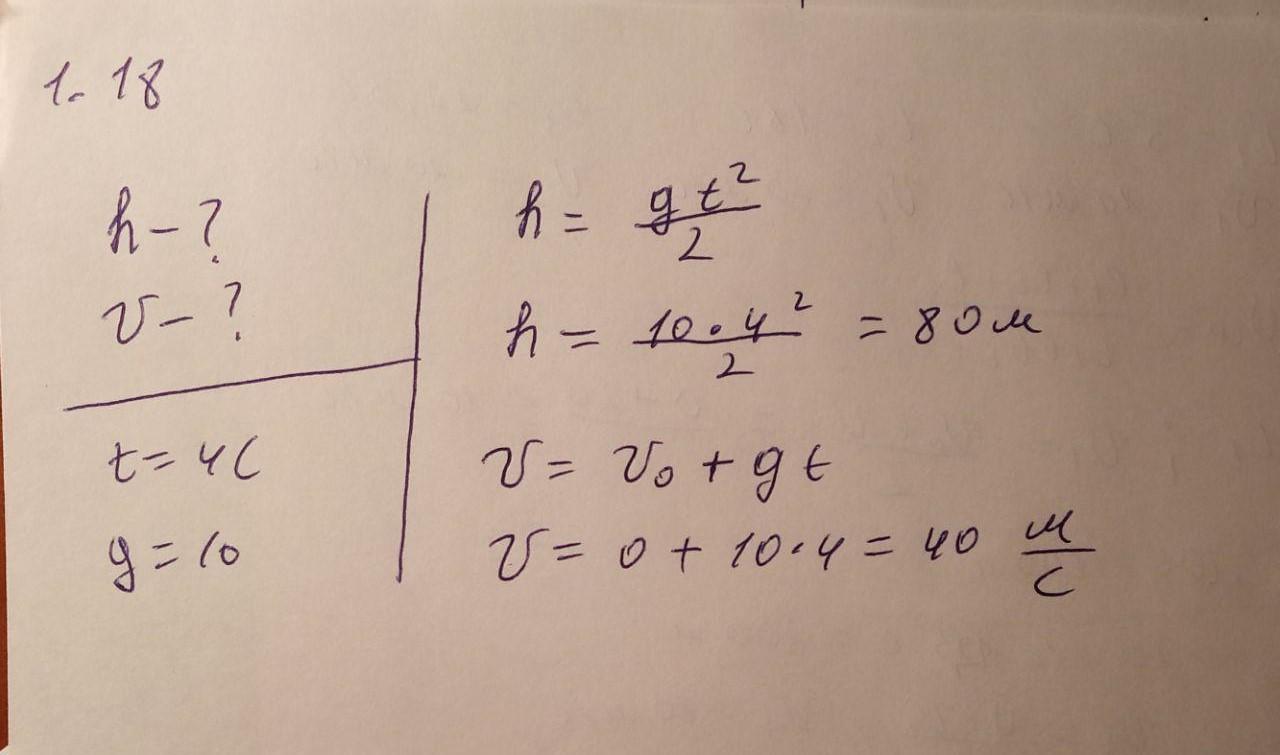 1. 18
h - ?
v - ?
t = 4 с
g = 10
h = gt²/2
h = 10·4²/2 = 80 м
v = v₀ + gt
v = 0 + 10·4 = 40 м/с